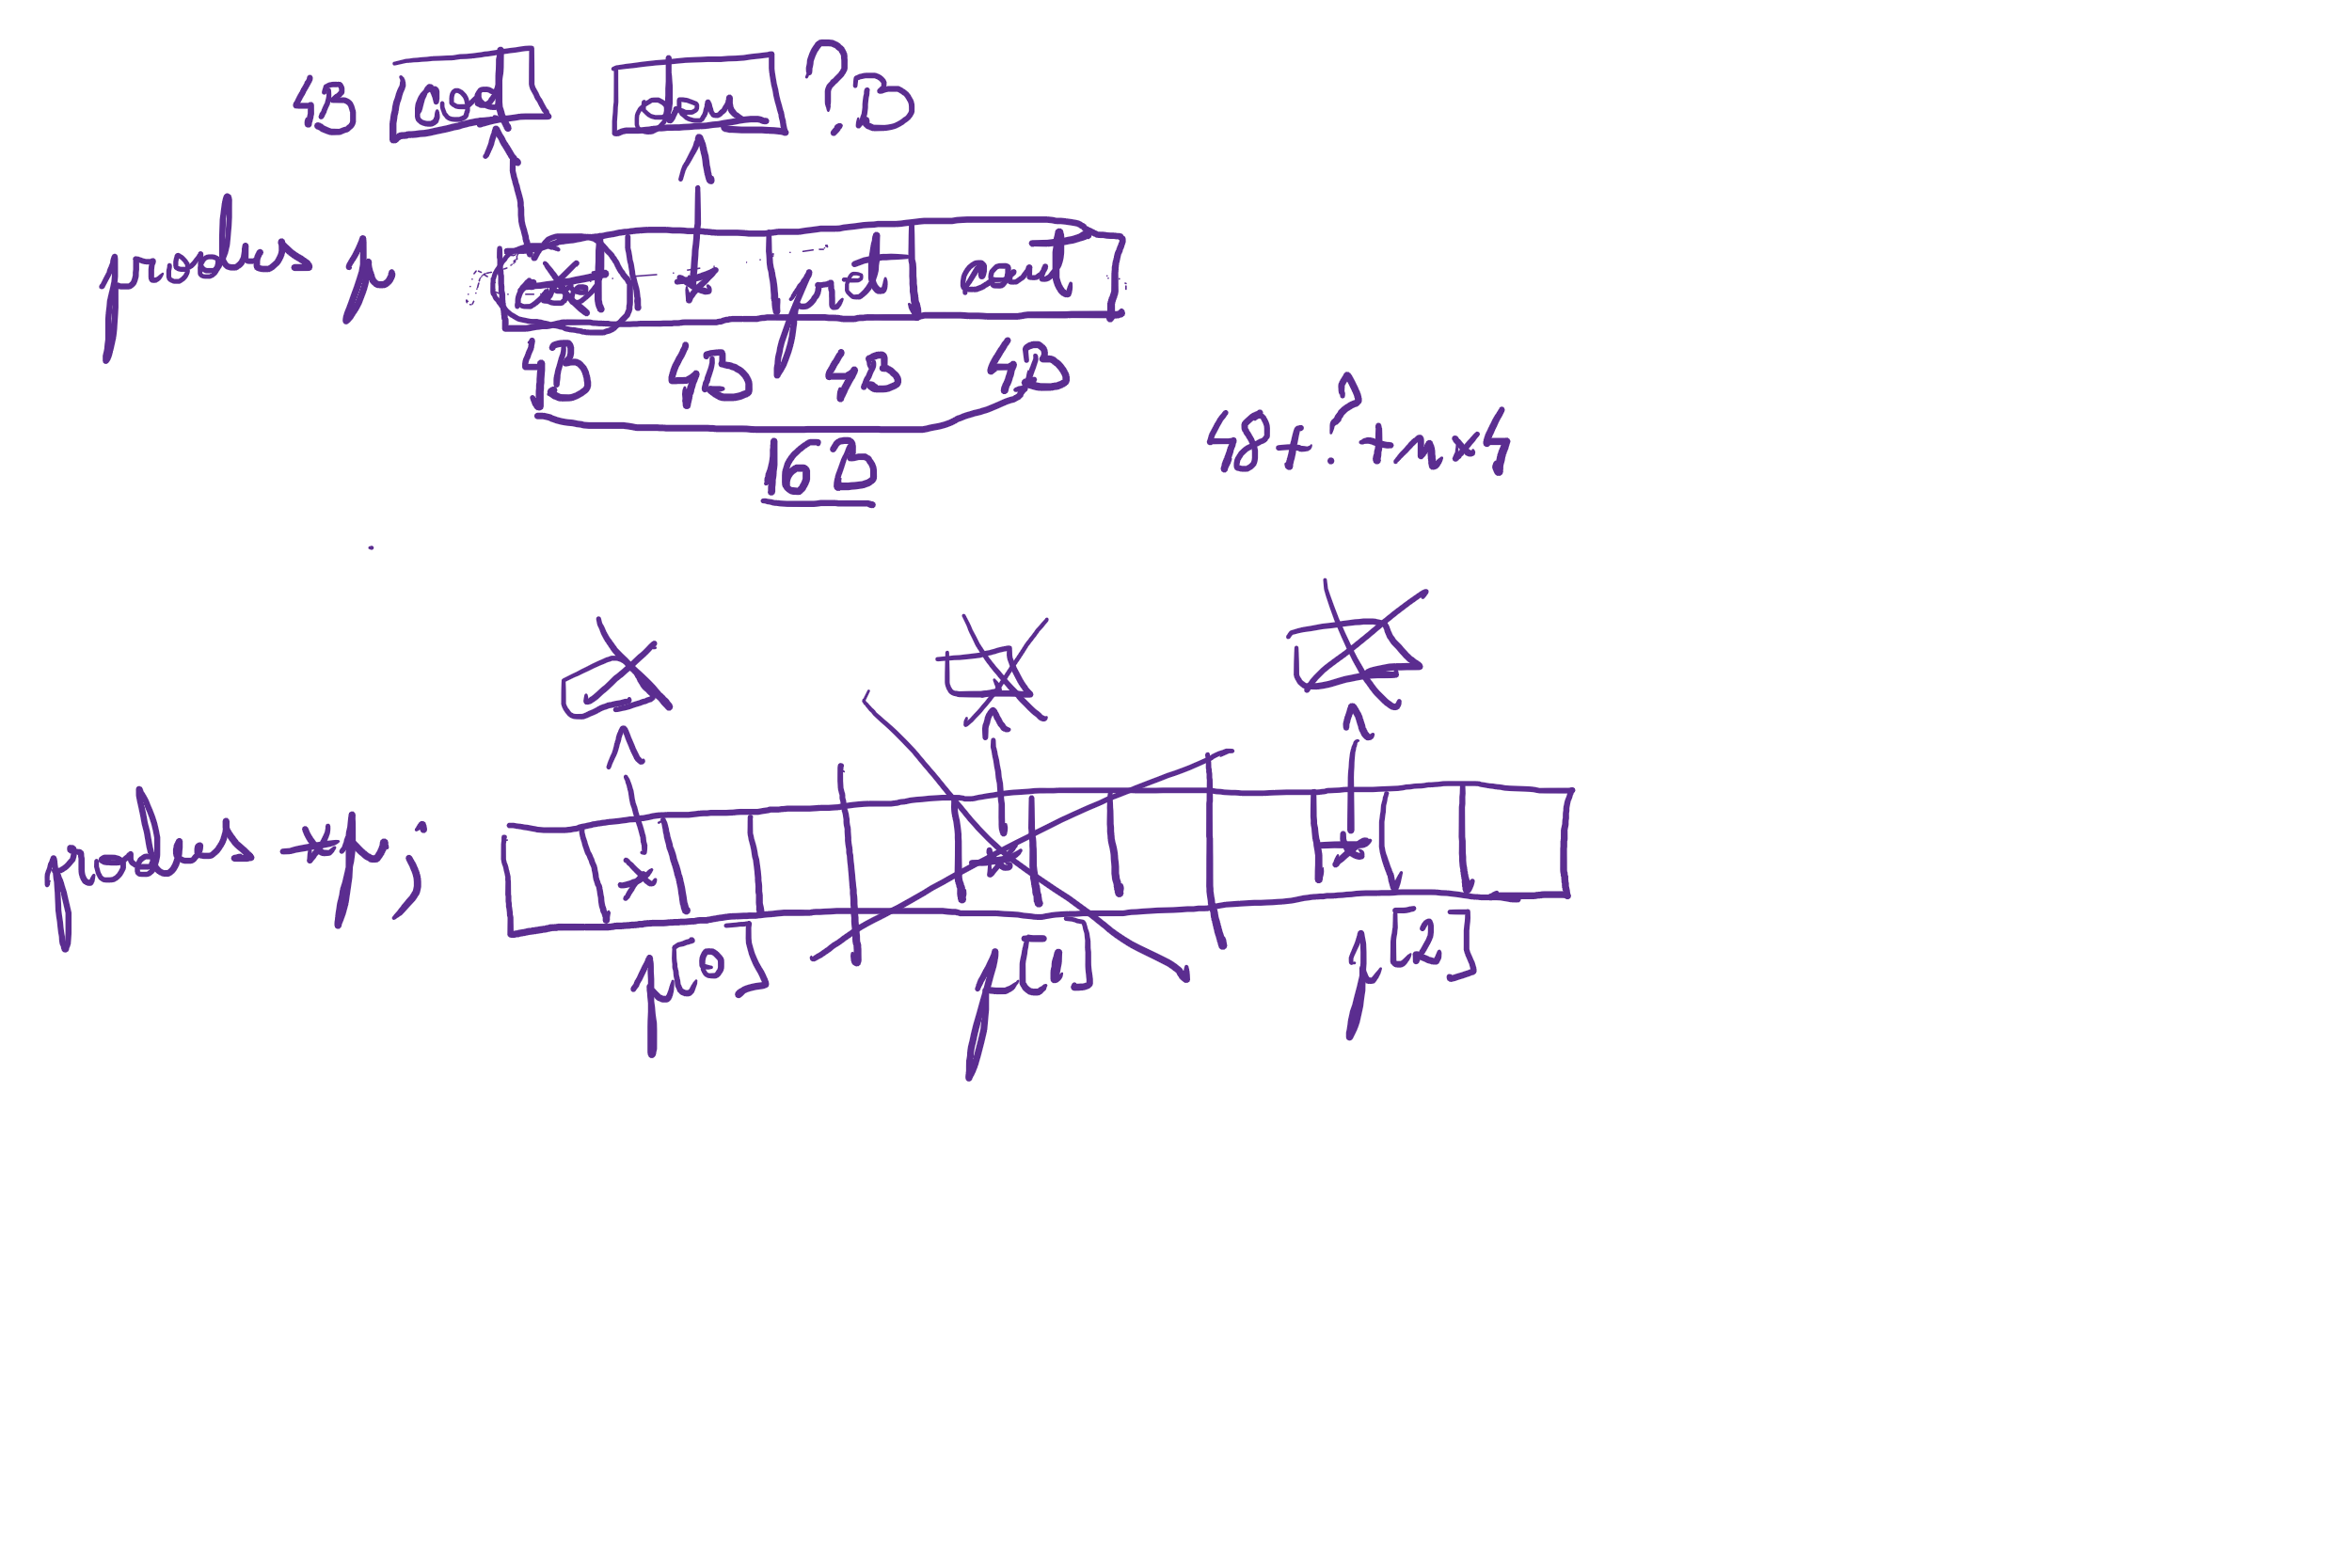 4B cod den ?B
produs p
* pret cant
4B 4B 4B 4B
16B
48+?+m×4
produs *p;
p[0] p[1] p[2]